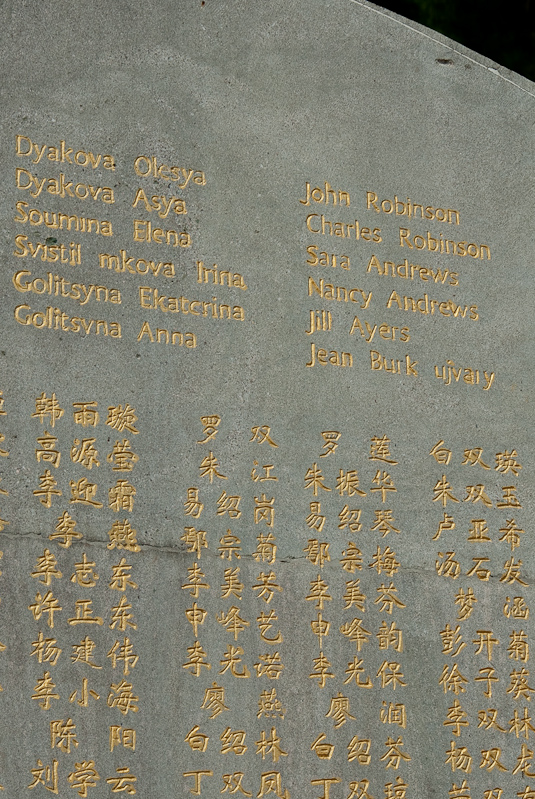 Dyakova Olesya
Dyakova Asya
Soumina Elena
Svistil mkova Irina
Golitsyna Ekaterina
Golitsyna Anna
John Robinson
Charles Robinson
Sara Andrews
Nancy Andrews
Jill Ayers
Jean Burk ujvary
韩雨璇
高源莹
李迎霜
李燕
李志东
许正东
杨建伟
李小海
陈阳
刘学云
罗双
朱江
易绍岗
鄢宗菊
李美芳
申峰艺
李光诺
廖燕
白绍林
丁双凤
罗莲
朱振华
易绍琴
鄢宗梅
李美芬
申峰韵
李光保
廖润
白绍芬
丁双琼
白双瑛
朱双玉
卢亚希
汤石发
梦涵
彭开菊
徐子葵
李双林
杨双龙